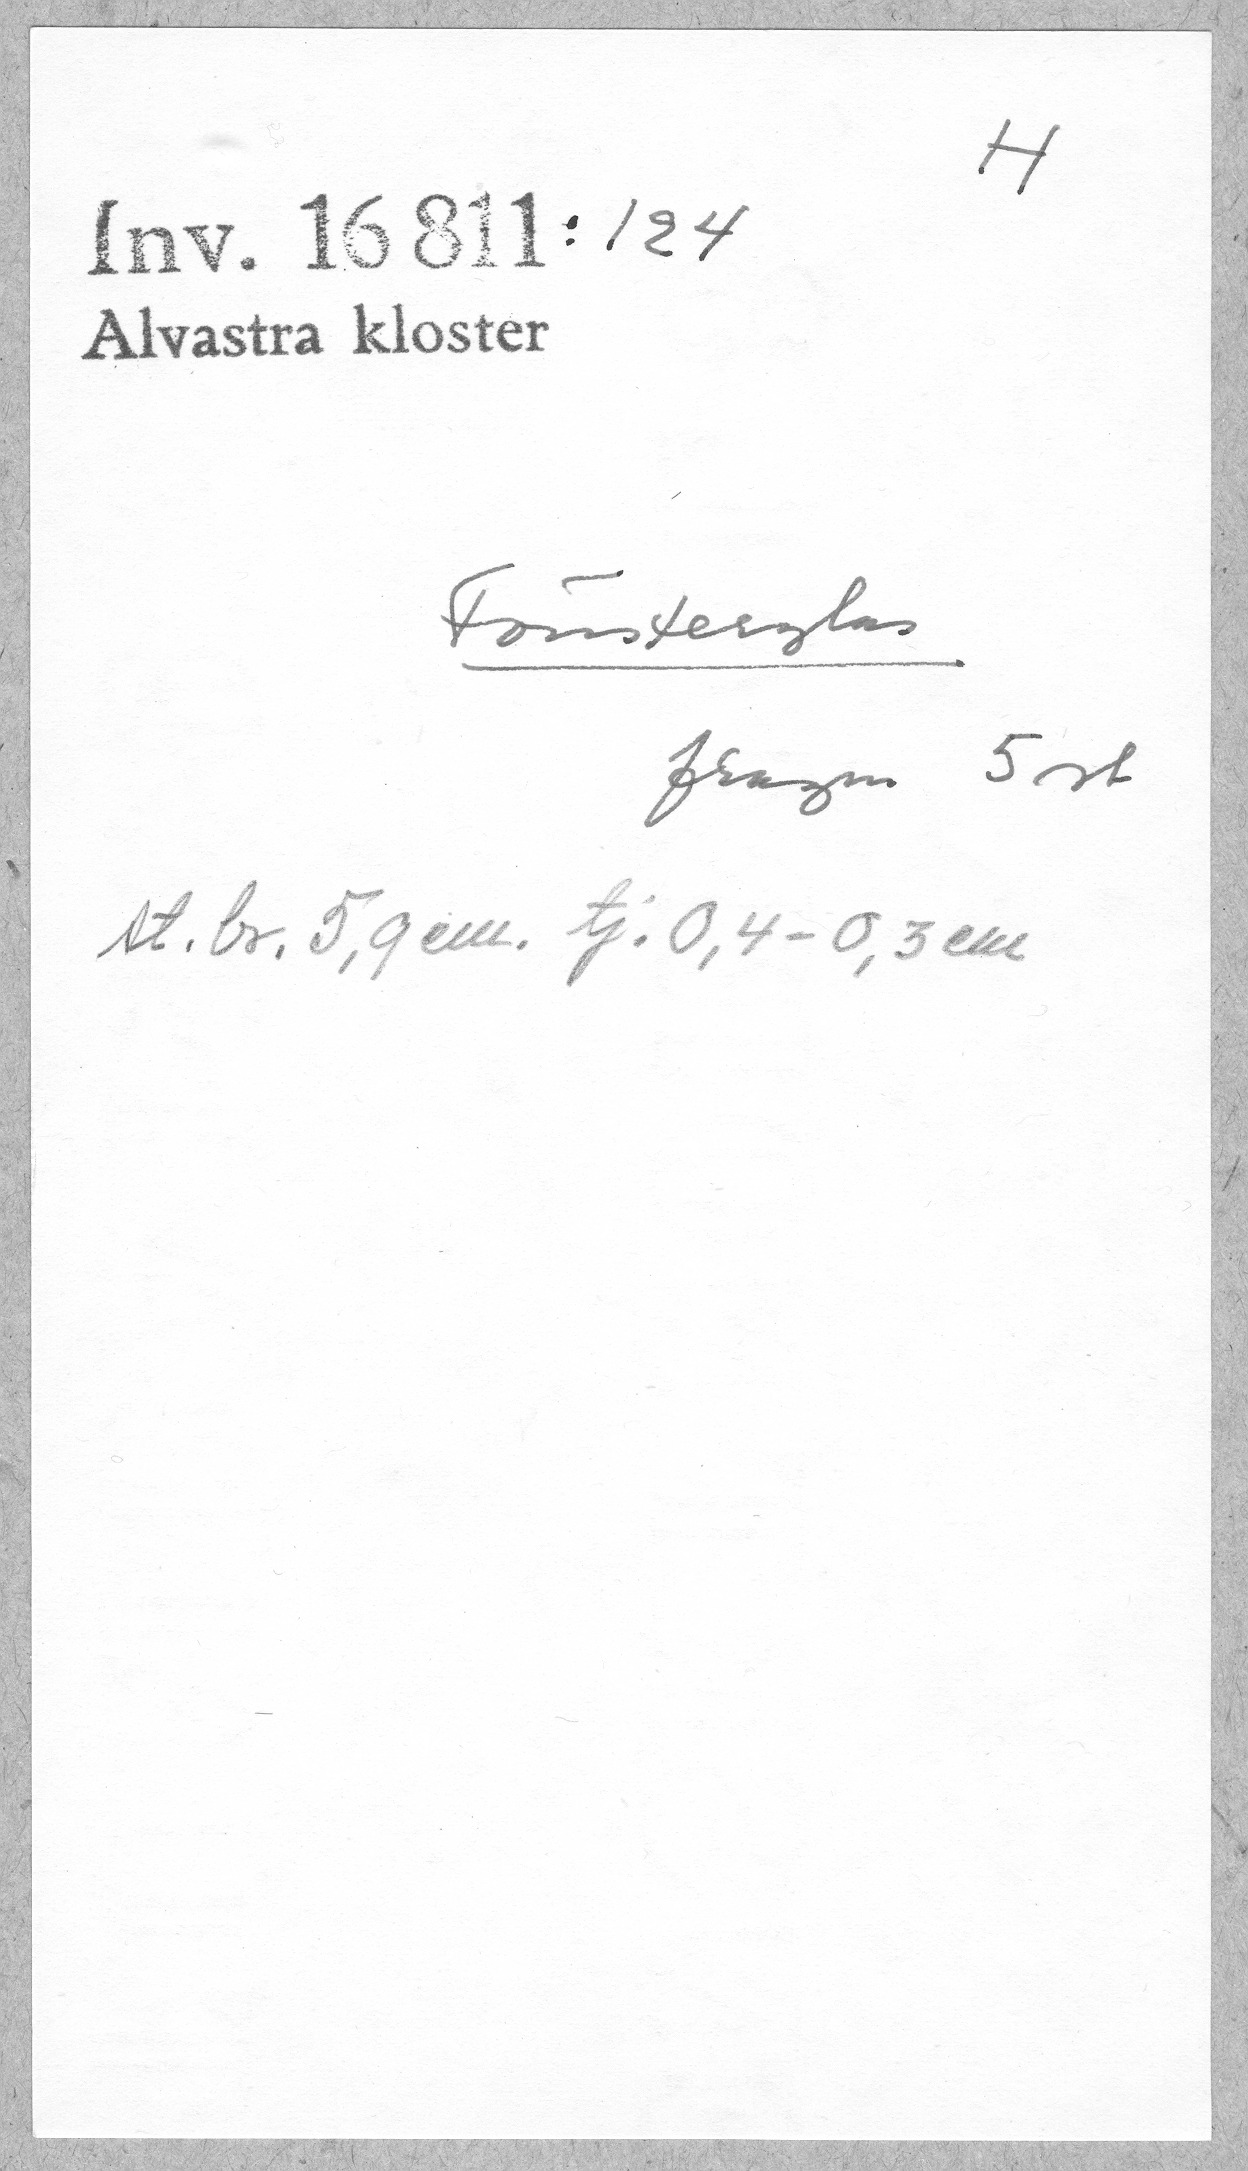 H
Inv. 16 811:124
Alvastra kloster
Fönsterglas
fragm 5 st
st. br. 5,9 cm. tj. 0,4-0,3 cm